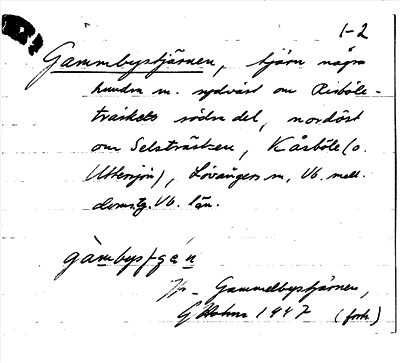 1-2
Gammbystjärnen, tjärn några
hundra m. sydväst om Risböle-
träskets södra del, nordöst
om Selsträsken, Kåsböle (o.
Uttersjön), Lövångers sn, Vb. mell.
doms.tg. Vb. län.
gàmbysṭɟæ̀n
Jfr - Gammelbystjärnen,
G Holm 1947 (forts.)